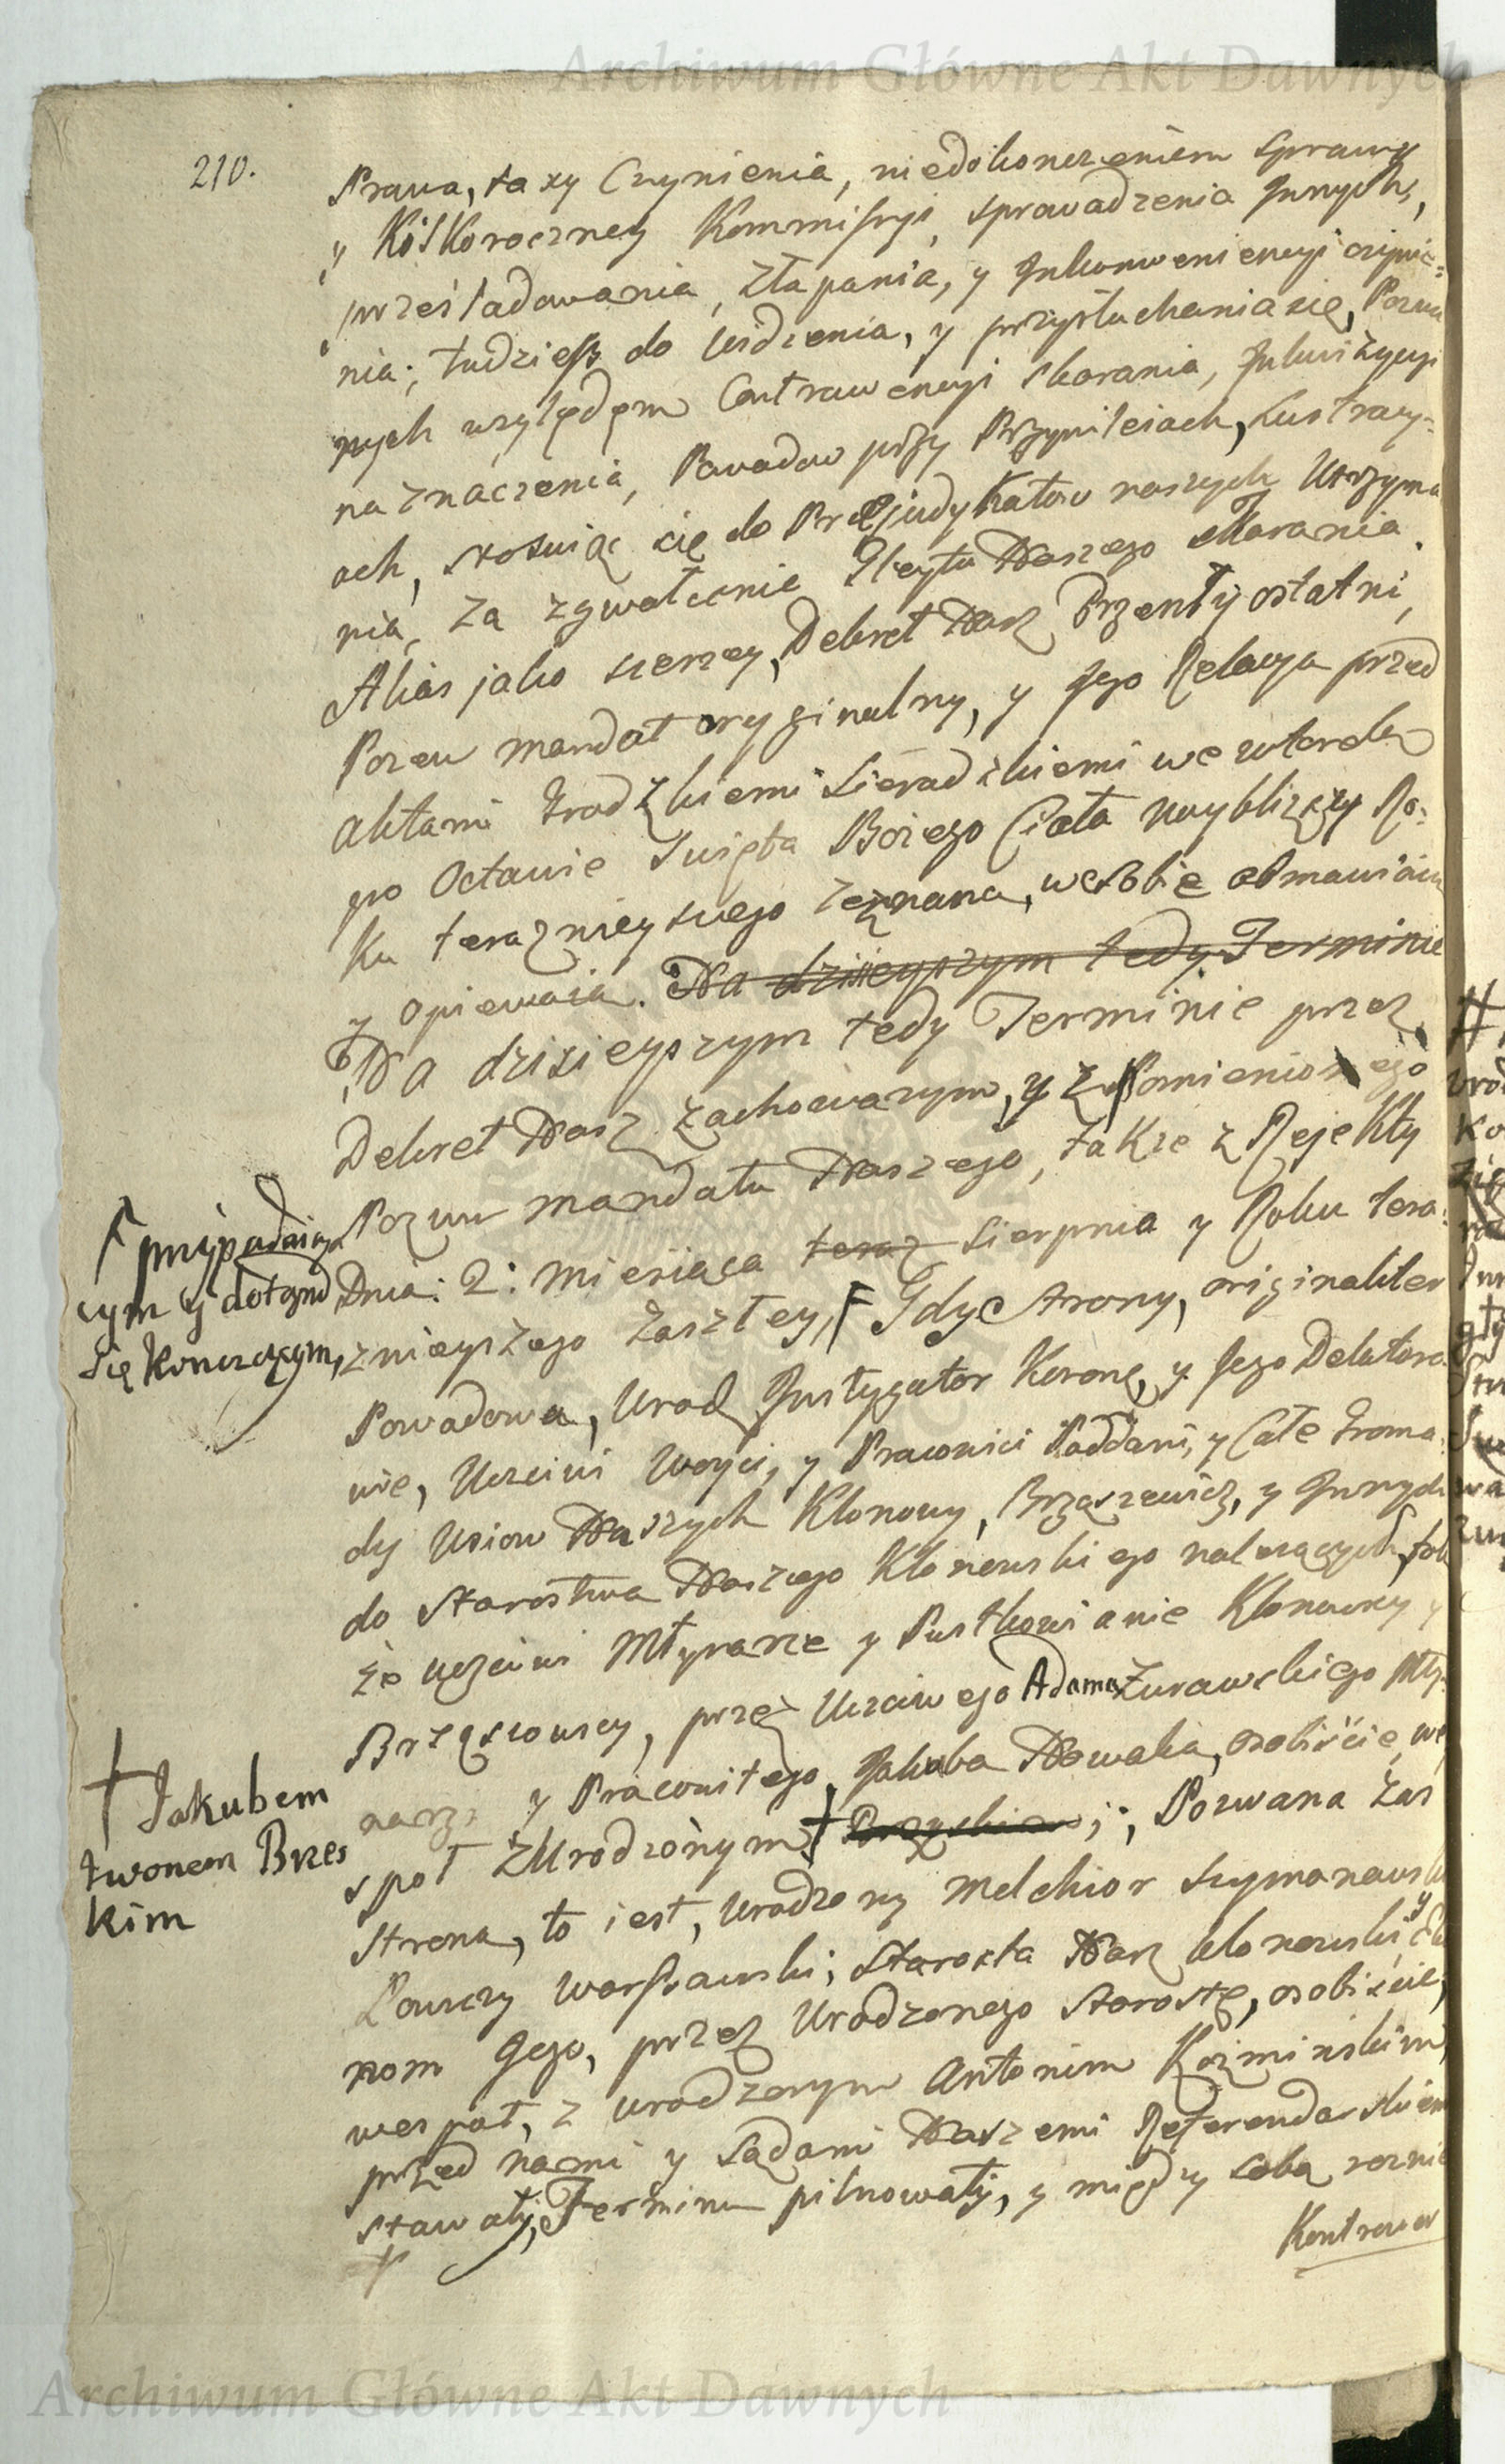 Archiwum Główne Akt Dawnych
210.
Prawa, ta xy Czynienia, niedokonczeniem Sprawy
y Kos Koroczney Kommissyi, sprowadzenia Innych,
prześladowania, złapania, y Inkonweniencyi czynie=
nia; tudziesz do widzenia, y przysłuchania się, Pozwa
nych względem Contrawencyi skarania, Inkwizycyi
naznaczenia, Powodow przy Przywileiach, Lustracy=
ach, stosuiąc się do Prejudykatow naszych Utrzyma
nia, za zgwałcenie Gleytu Naszego Karania.
Alias jako szerzey, Dekret Nasz Przeszły ostatni,
Pozew mandat oryginalny, y Jego Relacya przed
aktami Grodzkiemi Sieradzkiemi we wtorek
po Octawie Swięta Bożego Ciała naybliższy Ro=
ku teraznieyszego zeznana, w sobie obmawiaią
y opiewaią. Na dzisieyszym tedy Terminie
Na dzisieyszym tedy Terminie przez
Dekret Nasz zachowanym, y z Pomienionego
Pozwu mandatu Naszego, takze z Rejekty
Dnia: 2: Miesiąca teraz Sierpnia y Roku tera=
znieyszego zaszłey, Gdy Strony, originaliter
Powodowa, Urod Instygator Koron, y Jego Delatoro
wie, Uczciwi Woyci, y Pracowici Poddani, y Całe Groma
dy Wsiow Naszych Klonowy, Brząszewicz, y Innych
do Starostwa Naszego Klonowskiego nalezących, tak
że uczciwi Młynarze y Pustkowianie Klonowscy y
Brząszowscy, przez Uczciwego Adama Zurawskiego Mły=
narza y Pracowitego Jakuba Nowaka, osobiście, we
społ z Urodzonym; Pozwana zas
Strona, to iest, Urodzony Melchior Szymanowski
Łowczy Warszawski; Starosta Nasz klonowski, y
nom Jego, przez Urodzonego Starostę, osobiście,
wespoł, z Urodzonym Antonim Kozminskim,
przed nami y Sądami Naszemi Referendarskiemi
stawały, Terminu pilnowały, y między sobą roznie
Kontrower
przypadaią
cym y dotąd
się konczącym,
Jakubem
Iwonem Brzes
kim
Archiwum Główne Akt Dawnych